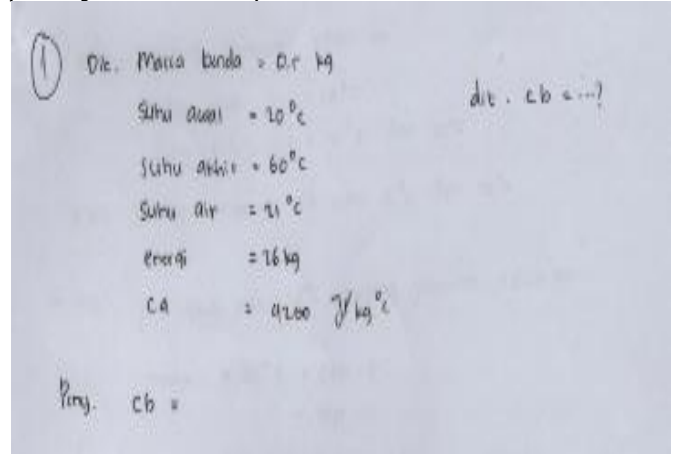 ① Dik. Massa benda = 0,5 kg
dit. cb = ...?
Suhu awal = 20°C
Suhu akhir = 60°C
Suhu air = 21°C
energi = 26 kg
CA = 4200 J/kg°C
Peny. cb =